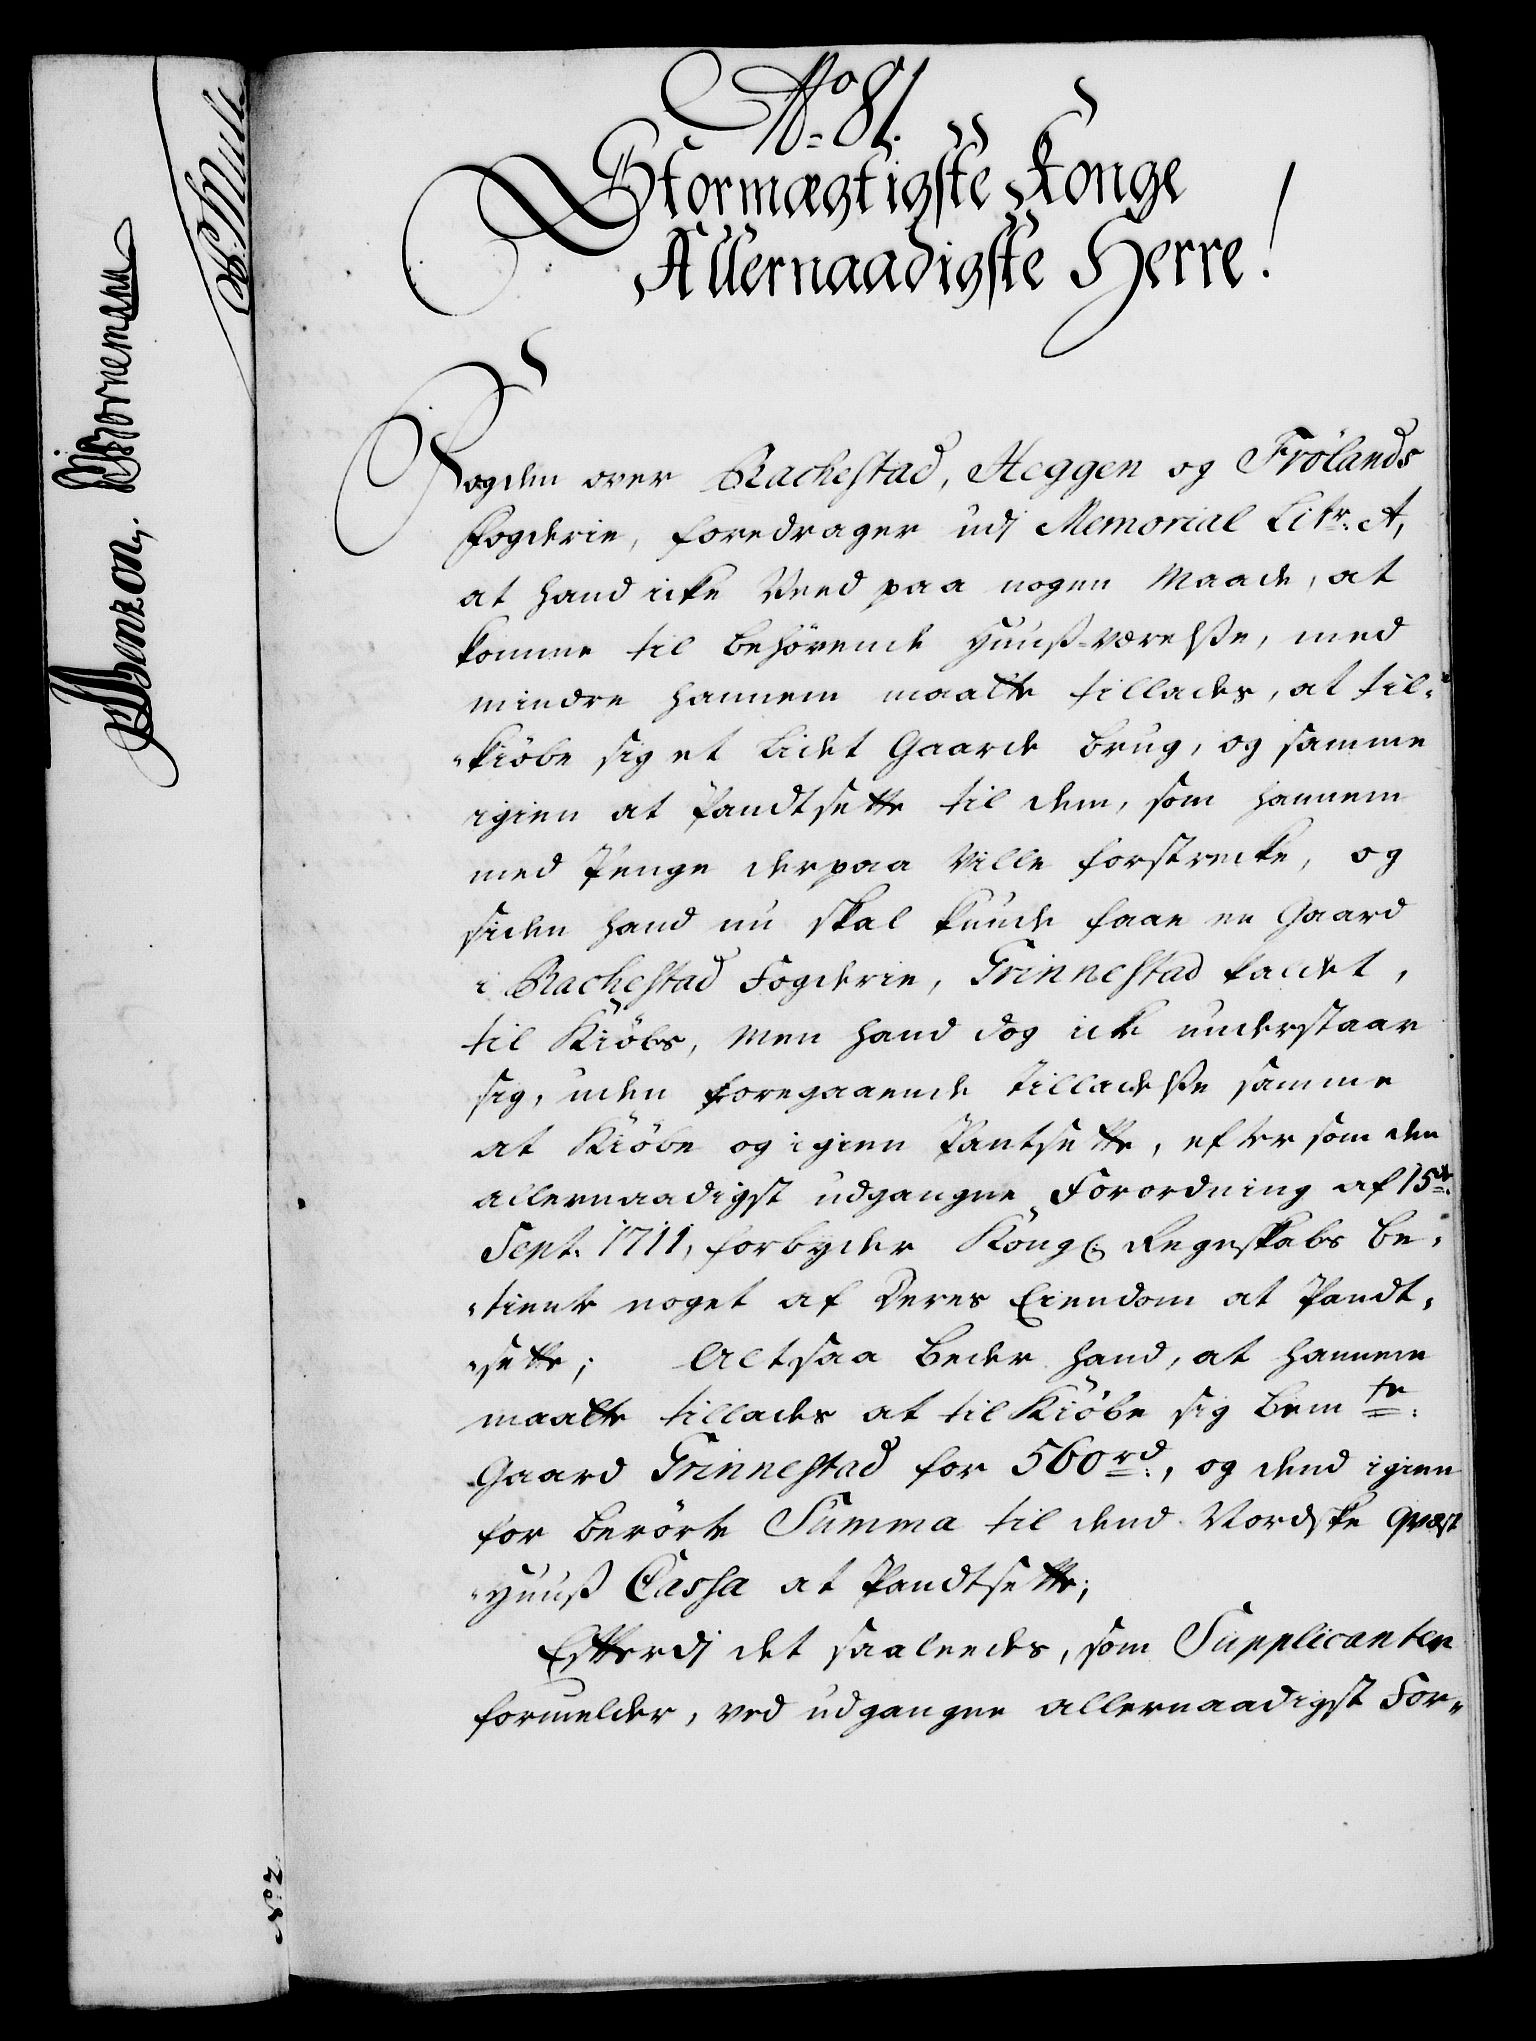 No 81.
Stormægtigste Konge
Allernaadigste Herre!
Fogden over Rachestad, Heggen og Frölands
Fogderie, foredrager udj Memorial Litr: A,
at hand icke Veed paa nogen Maade, at
komme til behörende Huuß-værelße, med
mindre hannem maatte tillades, at til-
kiöbe sig et lidet Gaarde brug, og samme
igien at Pandtsette til dem, som hannem
med Penge derpaa Ville forstrecke, og
siden hand nu skal kunde faae en Gaard
i Rachestad Fogderie, Grinnestad kaldet,
til Kiöbs, Men hand dog icke understaar
sig, uden foregaaende tilladelße samme
at Kiöbe og igien Pantsette, eftersom den
allernaadigst udgangne Forordning af 15de
Sept. 1711, forbyder Kongl. Regnskabs be-
tiente noget af Deres Eiendom at Pandt-
sette; Altsaa beder hand, at hannem
maatte tillades at til Kiöbe sig bemte:
Gaard Grinnestad for 560rd:, og dend igien
for berörte Summa til dend Nordske Qvæst
Huuß Cassa at Pandtsette;
Efterdj det saaleedes, som Supplicanten
formelder, ved udgangne allernaadigst For-
Benzon,
Bornemann